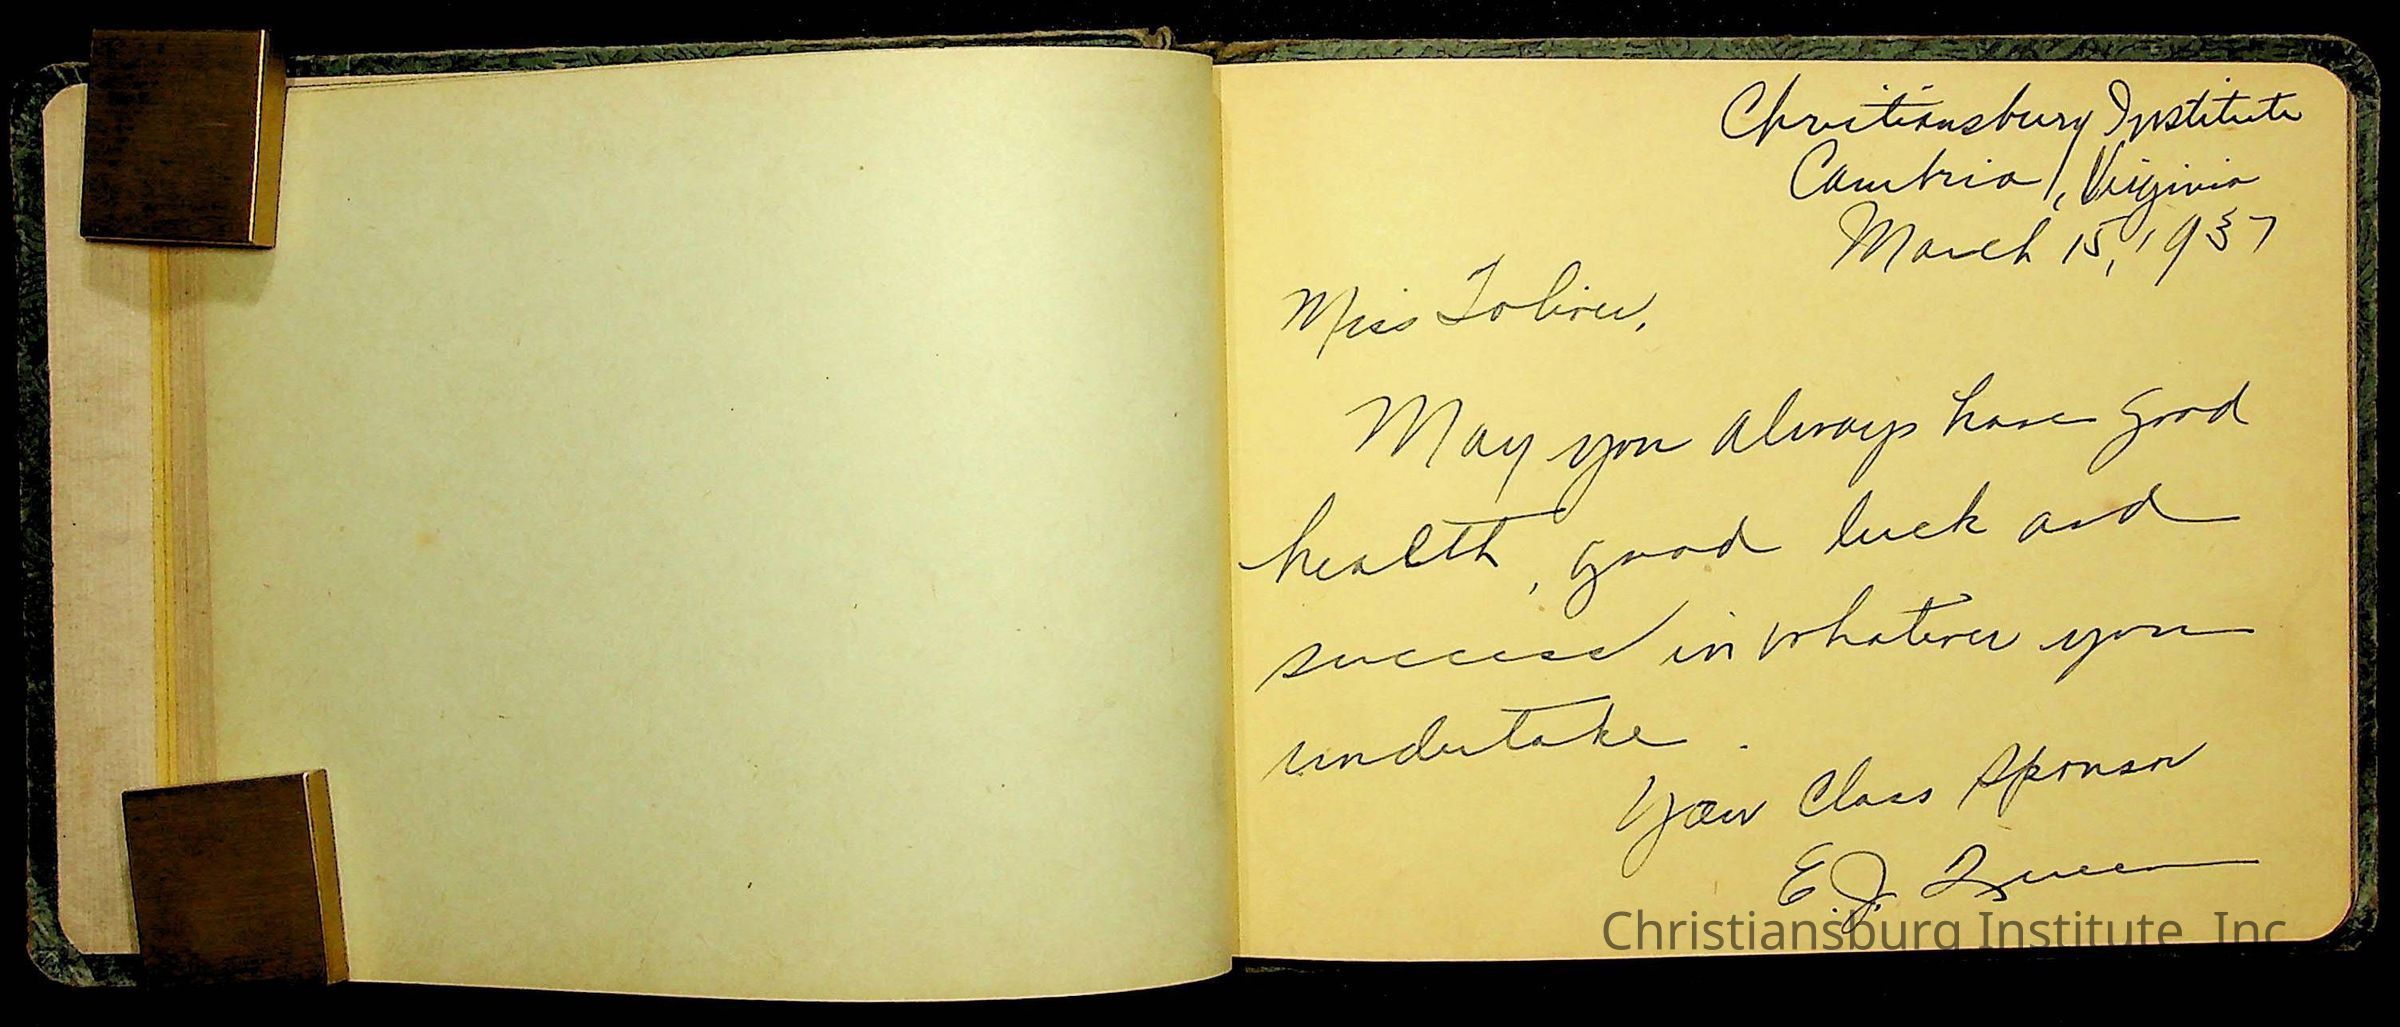 Christiansburg Institute
Cambria, Virginia
March 15, 1937
Miss Toliver,
May you always have good
health, good luck and
success in whatever you
undertake.
Your Class Sponsor
E. J.
Christiansburg Institute, Inc